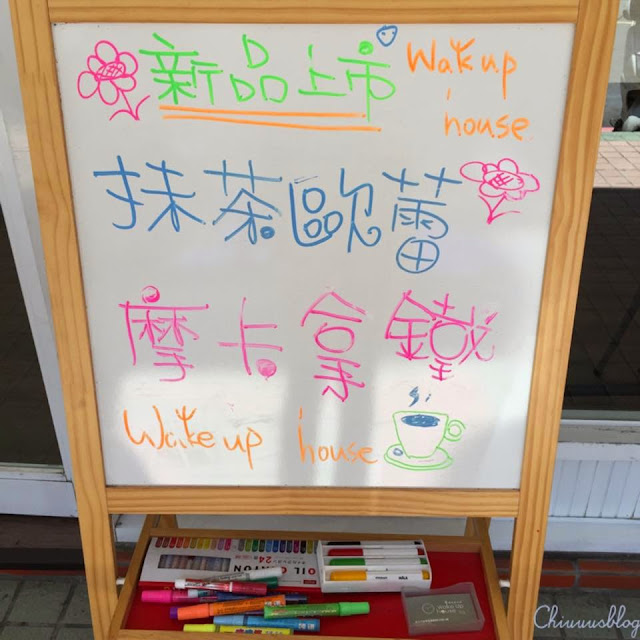 新品上市 Wake up
house
抹茶歐蕾
摩卡拿鐵
Wake up house
OIL CRAYON
24
Chiuuusblog